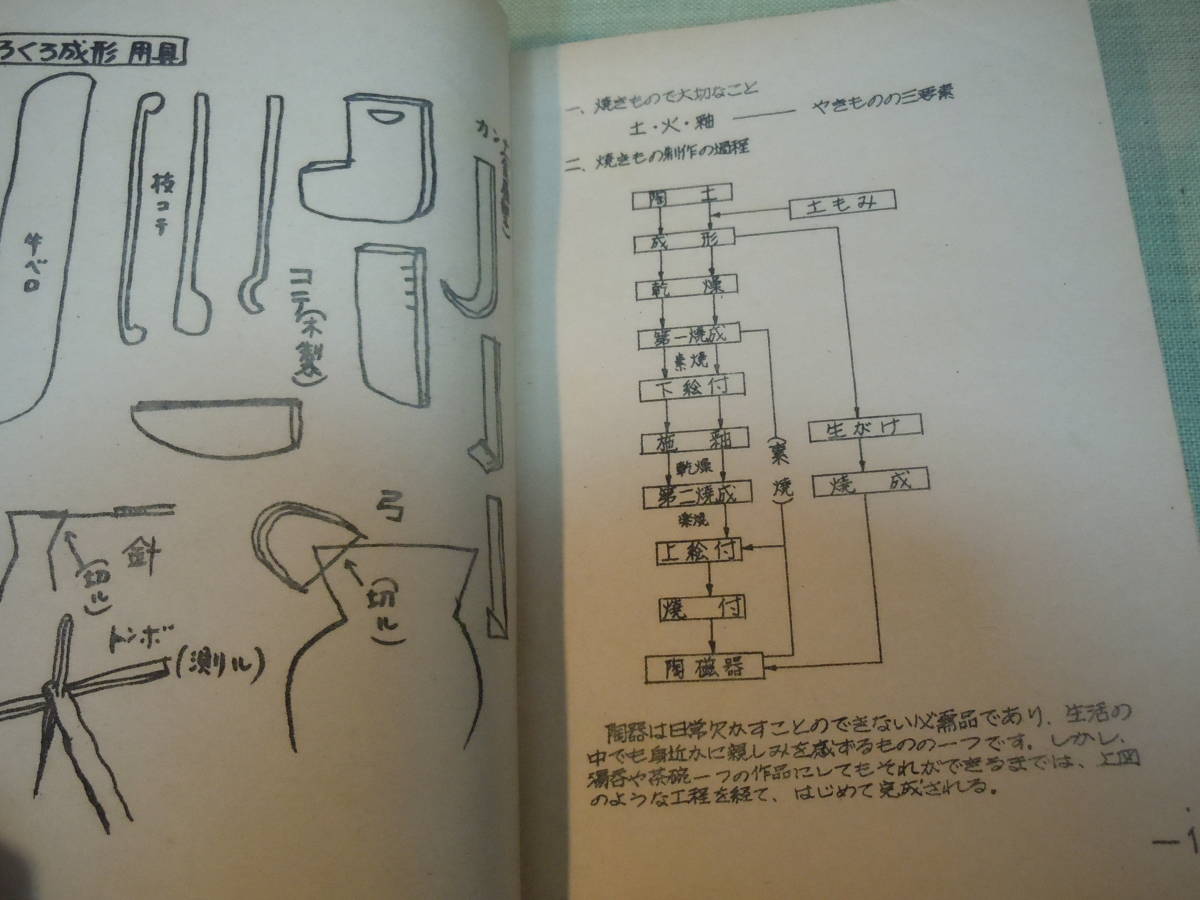 ろくろ成形 用具
牛ベロ
枝コテ
コテ(木製)
カンナ
針
(切ル)
弓
(切ル)
トンボ
(測リル)
一、焼きもので大切なこと
土・火・釉 ―― やきものの三要素
二、焼きもの制作の過程
陶 土
土もみ
成 形
乾 燥
第一焼成
素焼
下絵付
生がけ
施 釉
(素焼)
乾燥
焼 成
第二焼成
上絵付
焼 付
陶磁器
陶器は日常欠かすことのできない必需品であり、生活の
中でも身近かに親しみを感ずるものの一つです。しかし、
湯呑や茶碗一つの作品にしてもそれができるまでは、上図
のような工程を経て、はじめて完成される。
―1